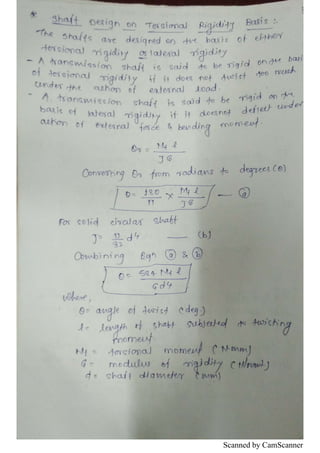 * Shaft Design on Torsional Rigidity Basis :
The shafts are designed on the basis of either
torsional rigidity or lateral rigidity
- A transmission shaft is said to be rigid on the basis
of torsional rigidity if it does not twist too much
under the action of external load.
- A transmission shaft is said to be rigid on the
basis of lateral rigidity if it doesnot deflect under
action of external force & bending moment.
θr = Mt l / JG
Converting θr from radians to degrees (θ)
θ = 180/π × Mt l / JG — (a)
For solid circular shaft
J = π/32 d4 — (b)
Combining Eqn (a) & (b)
θ = 584 Mt l / Gd4
where,
θ = angle of twist (deg.)
l = length of shaft subjected to twisting
moment
Mt = torsional moment (N-mm)
G = modulus of rigidity (N/mm2)
d = shaft diameter (mm)
Scanned by CamScanner